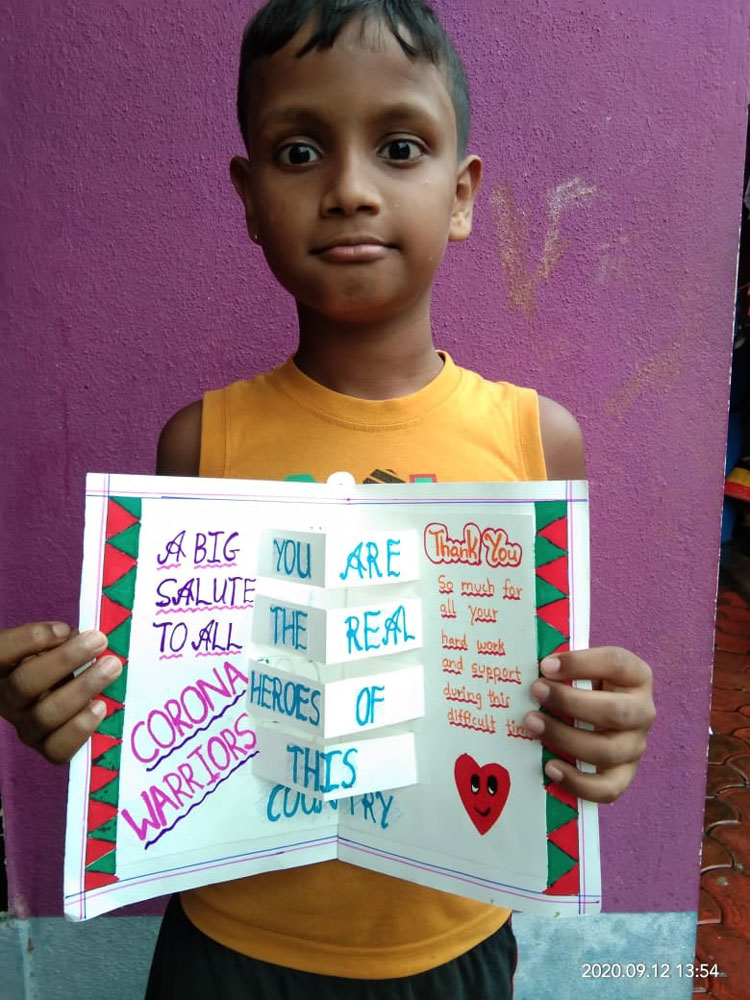 A BIG
SALUTE
TO ALL
CORONA
WARRIORS
YOU ARE
THE REAL
HEROES OF
THIS
COUNTRY
Thank You
So much for
all your
hard work
and support
during this
difficult
2020.09.12 13:54